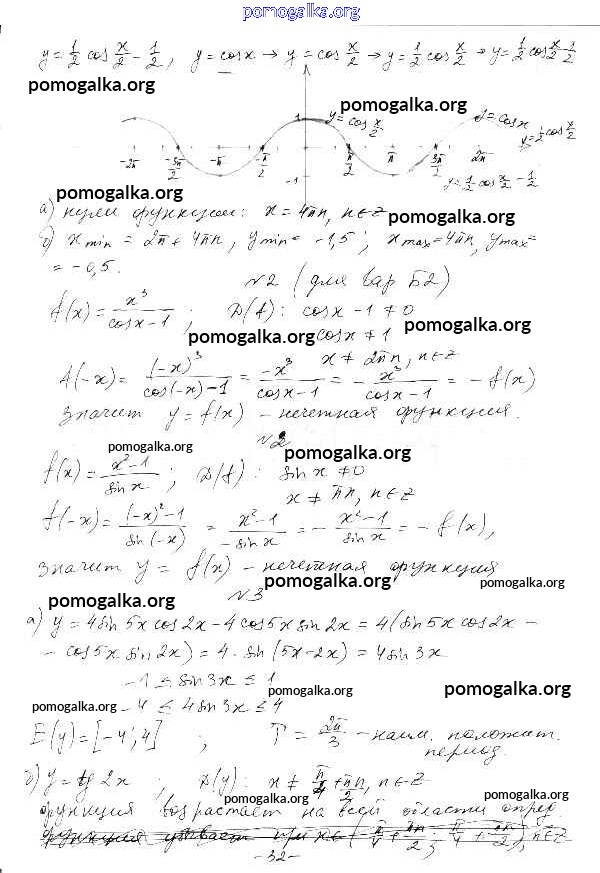 pomogalka.org
y = 1/2 cos x/2 - 1/2, y = cos x → y = cos x/2 → y = 1/2 cos x/2 → y = 1/2 cos x/2 - 1/2
pomogalka.org
pomogalka.org
1 y = cos x/2 y = cos x
y = 1/2 cos x/2
-2π -3π/2 -π -π/2 π/2 π 3π/2 2π
-1 y = 1/2 cos x/2 - 1/2
pomogalka.org
а) нули функции: x = 4πn, n∈Z
pomogalka.org
б) x min = 2π + 4πn, y min = -1,5; x max = 4πn, y max =
= -0,5.
№2 (для вар Б2)
f(x) = x³/(cos x - 1); D(f): cos x - 1 ≠ 0
pomogalka.org
pomogalka.org
cos x ≠ 1
x ≠ 2πn, n∈Z
f(-x) = (-x)³/(cos(-x) - 1) = -x³/(cos x - 1) = - x³/(cos x - 1) = -f(x)
Значит y = f(x) - нечетная функция.
№2
pomogalka.org
pomogalka.org
f(x) = (x² - 1)/sin x; D(f): sin x ≠ 0
x ≠ πn, n∈Z
f(-x) = ((-x)² - 1)/sin(-x) = (x² - 1)/(-sin x) = - (x² - 1)/sin x = -f(x),
Значит y = f(x) - нечетная функция
pomogalka.org
pomogalka.org
№3
pomogalka.org
а) y = 4 sin 5x cos 2x - 4 cos 5x sin 2x = 4(sin 5x cos 2x -
- cos 5x sin 2x) = 4 · sin(5x - 2x) = 4 sin 3x
-1 ≤ sin 3x ≤ 1
pomogalka.org
pomogalka.org
pomogalka.org
-4 ≤ 4 sin 3x ≤ 4
E(y) = [-4; 4]; T = 2π/3 - наим. положит.
период.
pomogalka.org
б) y = tg 2x; D(y): x ≠ π/4 + πn/2, n∈Z
pomogalka.org
pomogalka.org
функция возрастает на всей области опред.
-32-